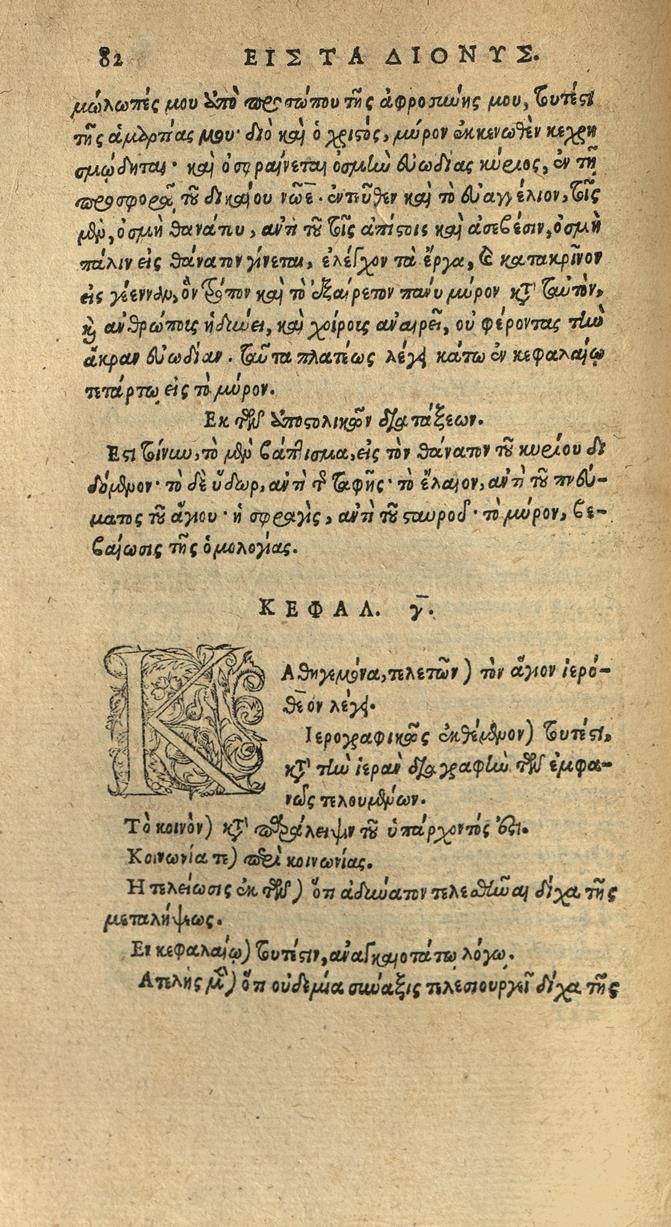 82 ΕΙΣ ΤΑ ΔΙΟΝΥΣ.
μώλωπές μου ἀπὸ προσώπου τῆς ἀφροσύνης μου, τουτέστι
τῆς ἁμαρτίας μου· διὸ καὶ ὁ χριστὸς, μύρον ἐκκενωθὲν κεχρη
σμώδηται· καὶ ὀσφραίνεται ὀσμὴν εὐωδίας κύριος, ἐν τῇ
προσφορᾷ τοῦ δικαίου νῶε. ἐντεῦθεν καὶ τὸ εὐαγγέλιον, τοῖς
μὲν, ὀσμὴ θανάτου, αὐτὴ τοῦ τοῖς ἀπίστοις καὶ ἀσεβέσιν, ὀσμὴ
πάλιν εἰς θάνατον γίνεται, ἐλέγχον τὰ ἔργα, καὶ κατακρῖνον
εἰς γέενναν, ὃν τρόπον καὶ τὸ ἐξαίρετον πάνυ μύρον κατ' ταὐτὸν,
καὶ ἀνθρώποις ἡδύνει, καὶ χοίροις ἀναιρεῖ, οὐ φέροντας τὴν
ἄκραν εὐωδίαν. ταῦτα πλατέως λέγει κάτω ἐν κεφαλαίῳ
τετάρτῳ εἰς τὸ μύρον.
Εκ τῶν ἀποστολικῶν διατάξεων.
Εστι τοίνυν, τὸ μὲν βάπτισμα, εἰς τὸν θάνατον τοῦ κυρίου δι
δόμενον· τὸ δὲ ὕδωρ, ἀντὶ τῆς ταφῆς· τὸ ἔλαιον, ἀντὶ τοῦ πνεύ-
ματος τοῦ ἁγίου· ἡ σφραγὶς, ἀντὶ τοῦ σταυροῦ· τὸ μύρον, βε-
βαίωσις τῆς ὁμολογίας.
ΚΕΦΑΛ. γ̅.
ΚΑθηγεμόνα, τελετῶν) τὸν ἅγιον ἱερό-
θεον λέγει.
Ιερογραφικῶς ἐκθέμενον) τουτέστι,
κατ' τὴν ἱερὰν διαγραφὴν τῶν ἐμφα-
νῶς τελουμένων.
Τὸ κοινὸν) κατ' παράλειψιν τοῦ ὑπάρχοντός ἐστι.
Κοινωνία τε) περὶ κοινωνίας.
Η τελείωσις ἐκ τῶν) ὅτι ἀδύνατον τελεσθῆναι δίχα τῆς
μεταλήψεως.
Εν κεφαλαίῳ) τουτέστιν, ἀναγκαιοτάτῳ λόγῳ.
Ατελὴς μὲν) ὅτι οὐδεμία σύναξις τελεσιουργεῖ δίχα τῆς